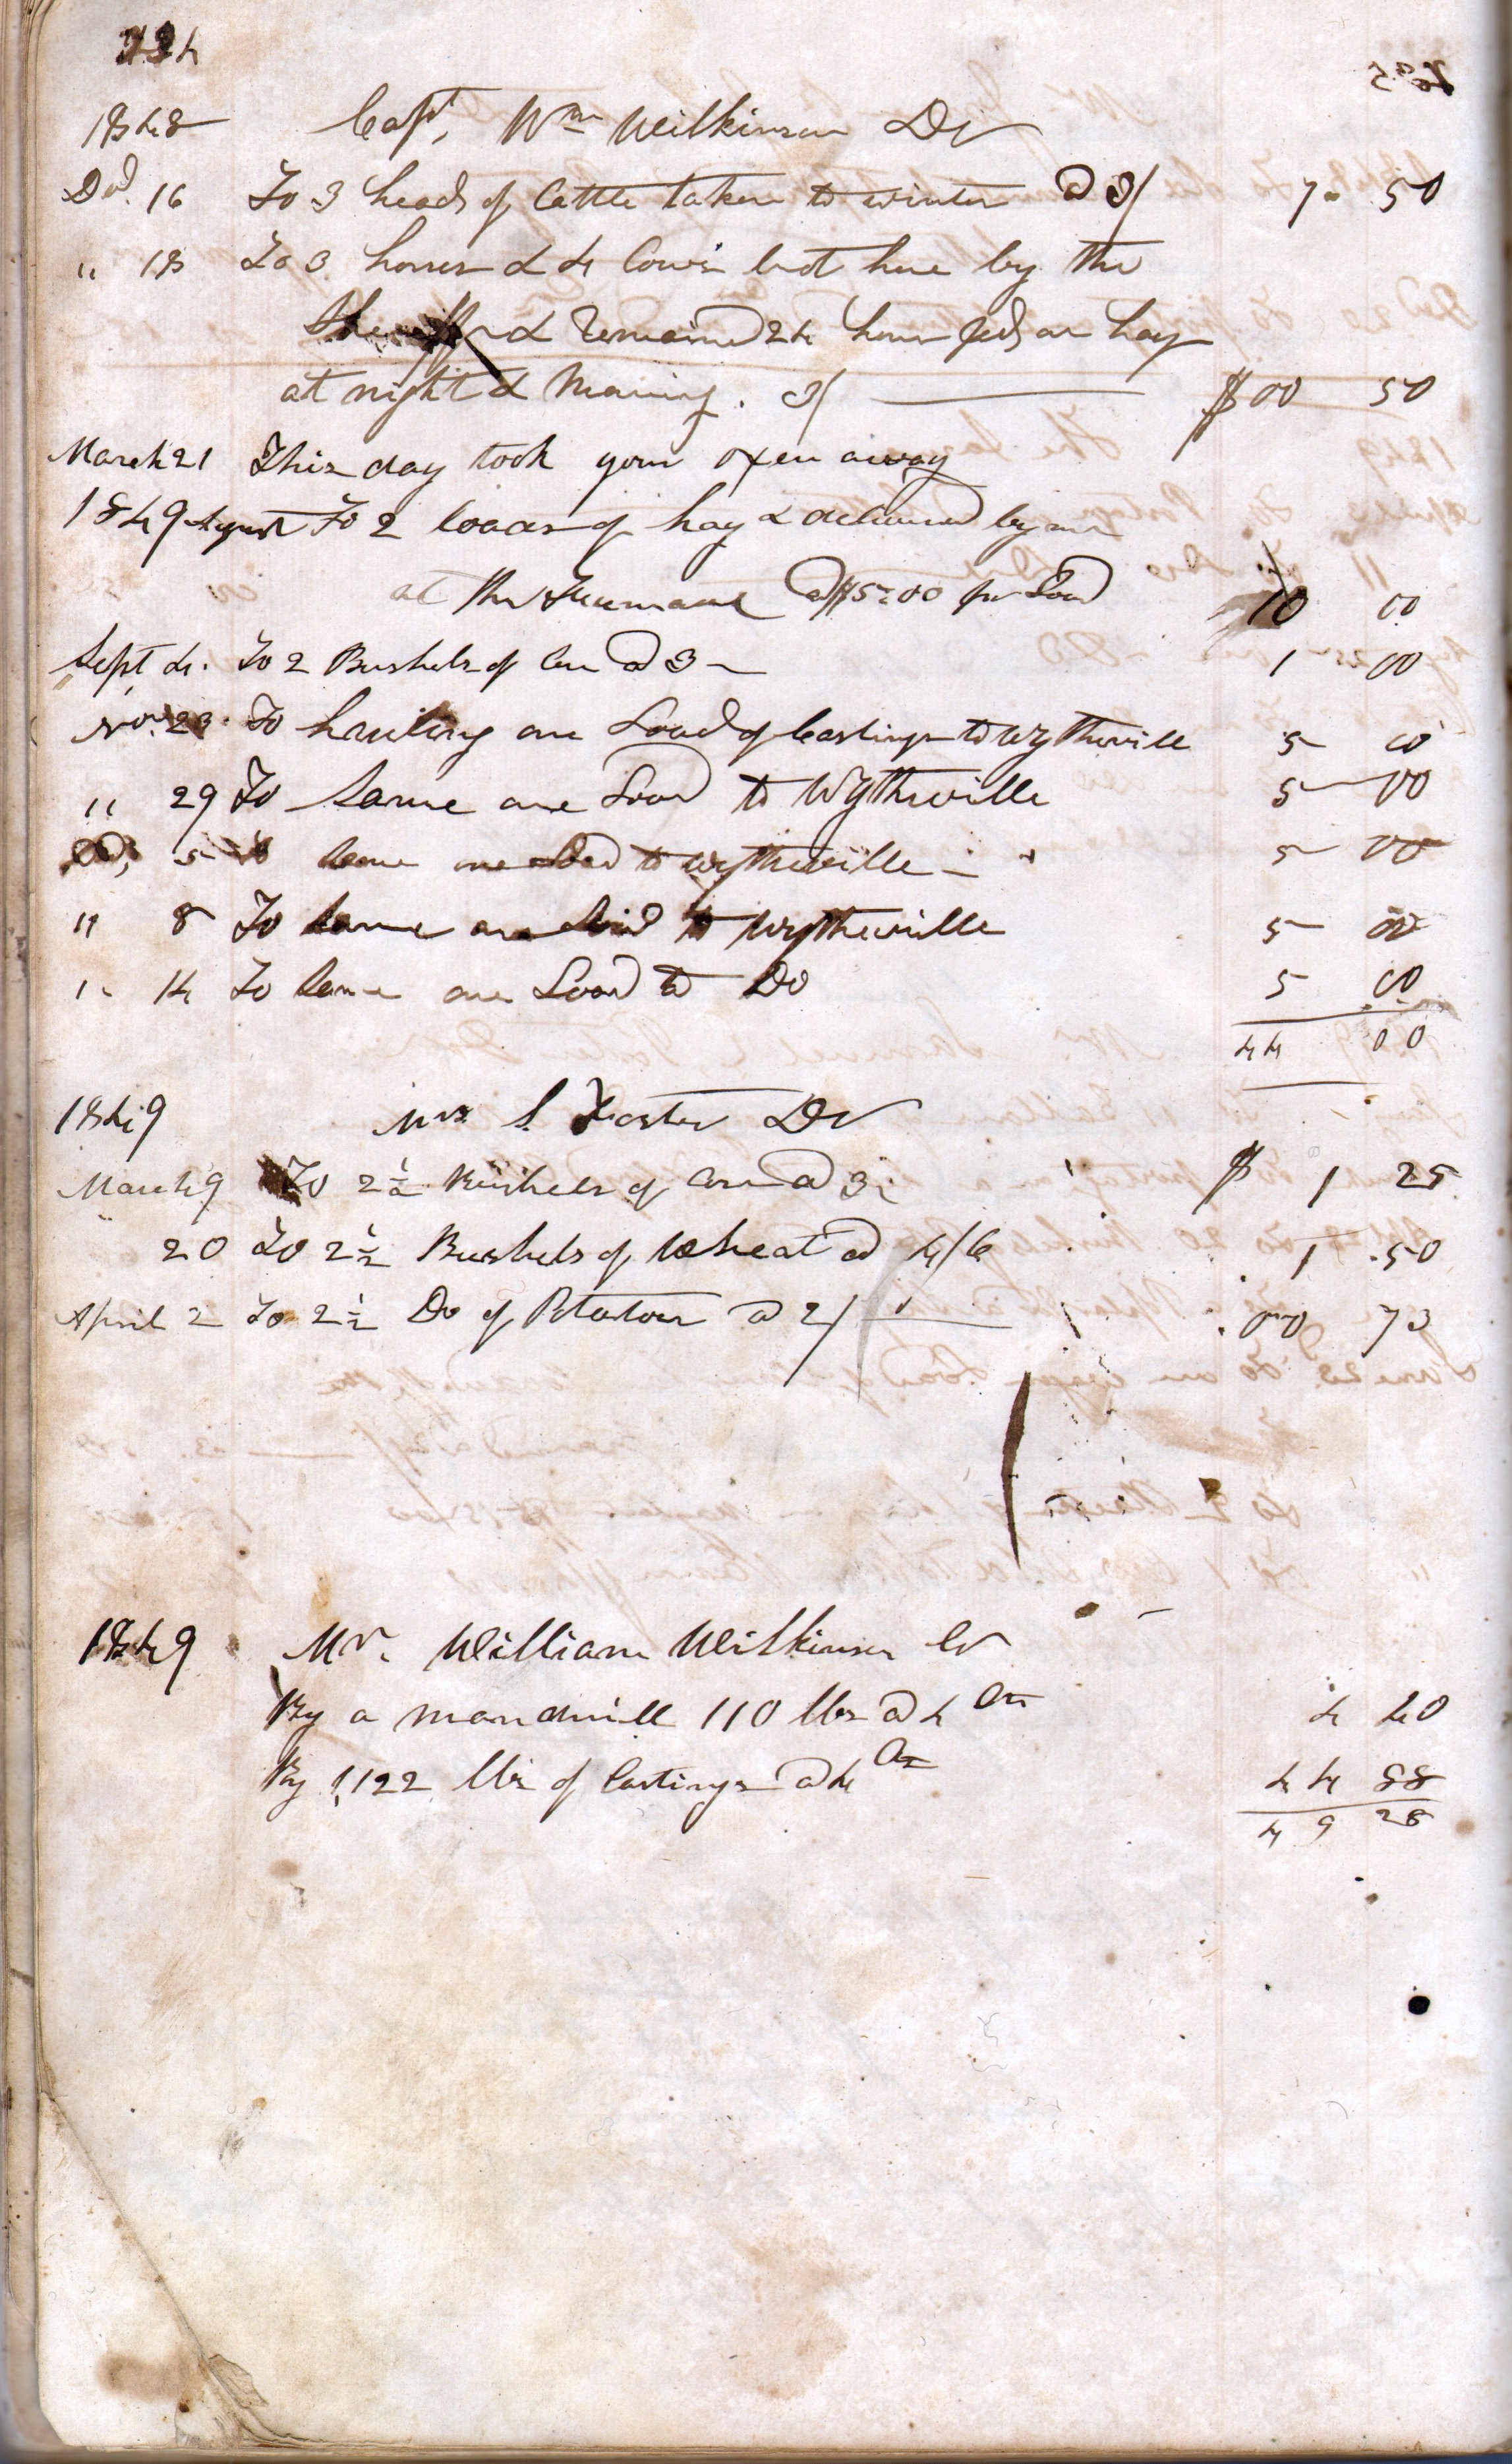 1848 Capt, Wm Wilkinson Dr
Dec. 16 To 3 heads of Cattle taken to winter @ 3/ 7. 50
" 18 To 3 horses & 4 Cows brot here by the
Sheriff & remained 24 hours fed on hay
at night & Morning. 3/ $00 50
March 21 This day took your oxen away
1849 August To 2 loads of hay & delivered by me
at the Furnace @ $5.00 per Load 10 00
Sept 4. To 2 Bushels of Corn @ 3 1 00
Nov. 23. To hauling one Load of Castings to Wytheville 5 00
" 29 To Same one Load to Wytheville 5 00
Dec, 5 To Same one Load to Wytheville 5 00
" 8 To Same one Load to Wytheville 5 00
" 14 To Same one Load to Do 5 00
44 00
1849 Mrs S. Foster Dr
March 9 To 2 1/2 Bushels of Corn @ 3 $ 1 25
20 To 2 1/2 Bushels of Wheat @ 4/6 1 .50
April 2 To 2 1/2 Do of Potatoes @ 2/ 00 73
1849 Mr. William Wilkinson Cr
By a mandrill 110 lbs @ 4 Cts 4 40
By 1,122 lbs of Castings @ 4 Cts 44 88
49 28